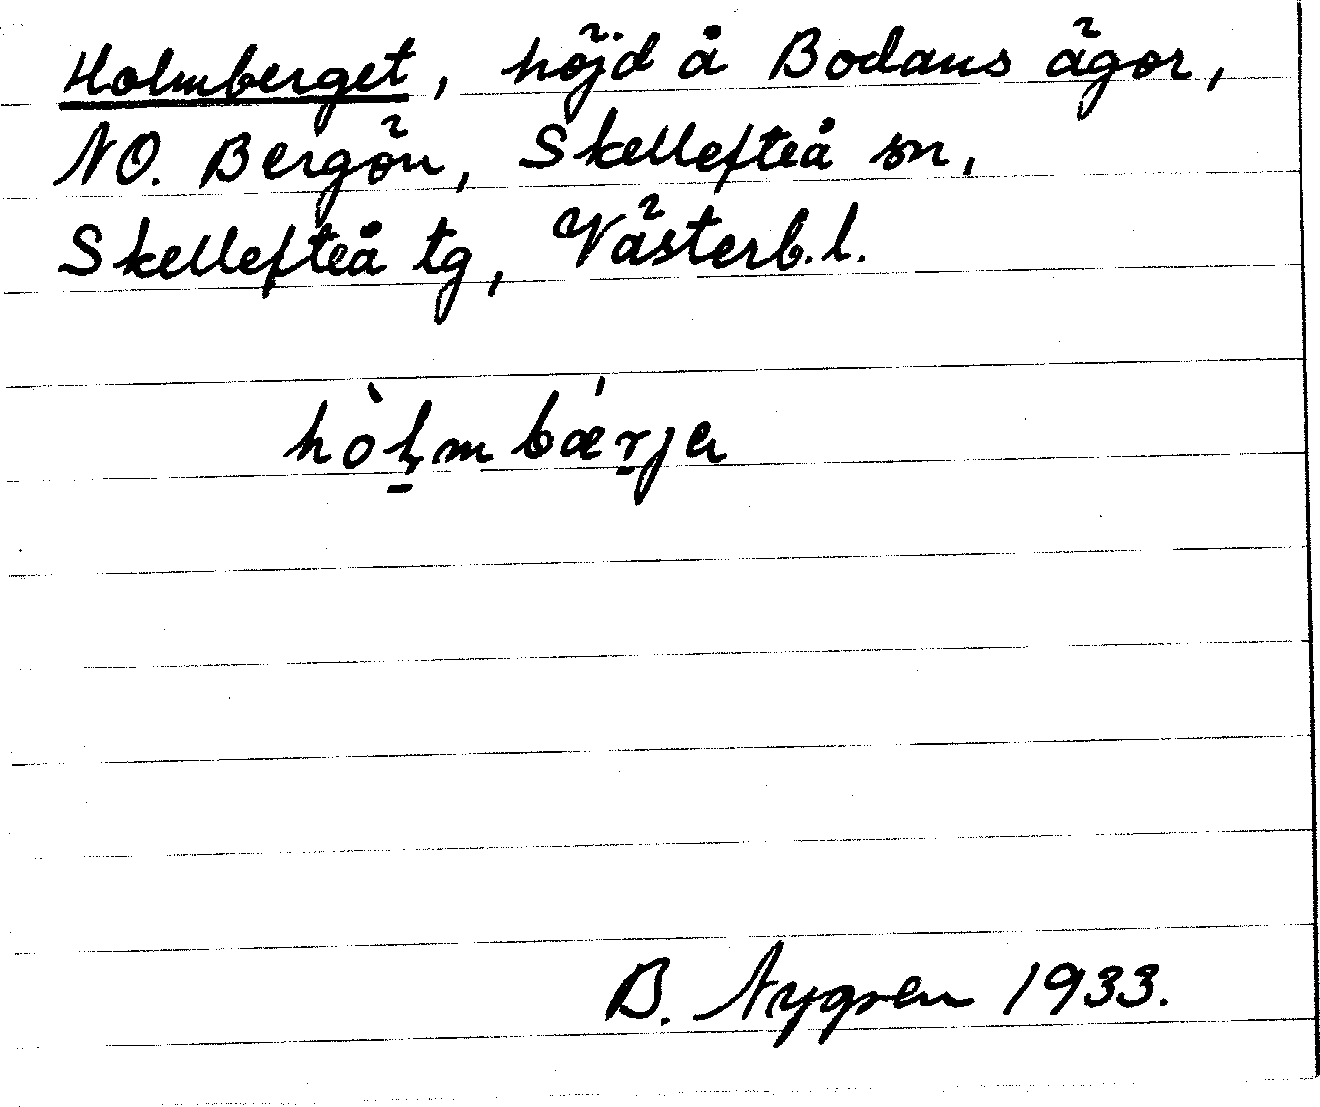 Holmberget, höjd å Bodans ägor,
NO. Bergön, Skellefteå sn,
Skellefteå tg, Västerb. l.
hòḷmbǽrja
B. Nygren 1933.